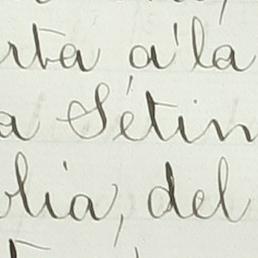 rta á la
a Sétim
olia, del